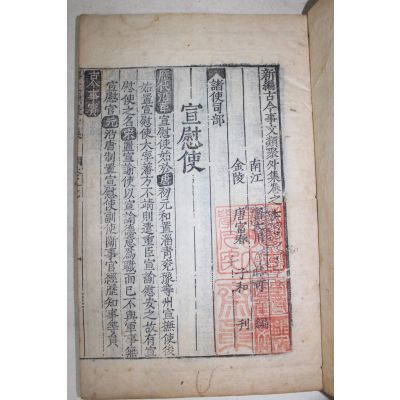 新編古今事文類聚外集卷之
南江
金陵 唐富春 子和 刊
諸使司部
宣慰使
歷代沿革 宣慰使始於唐初元和置淄青兗豫等州宣撫使後
始置宣慰使大學藩方不靖則遣重臣宣諭慰安之故有宣
慰使之名宋置宣諭使以宣諭德意爲職而已不與軍事無
宣慰官元沿唐制置宣慰使副使斷事官經歷知事等員
古今事實